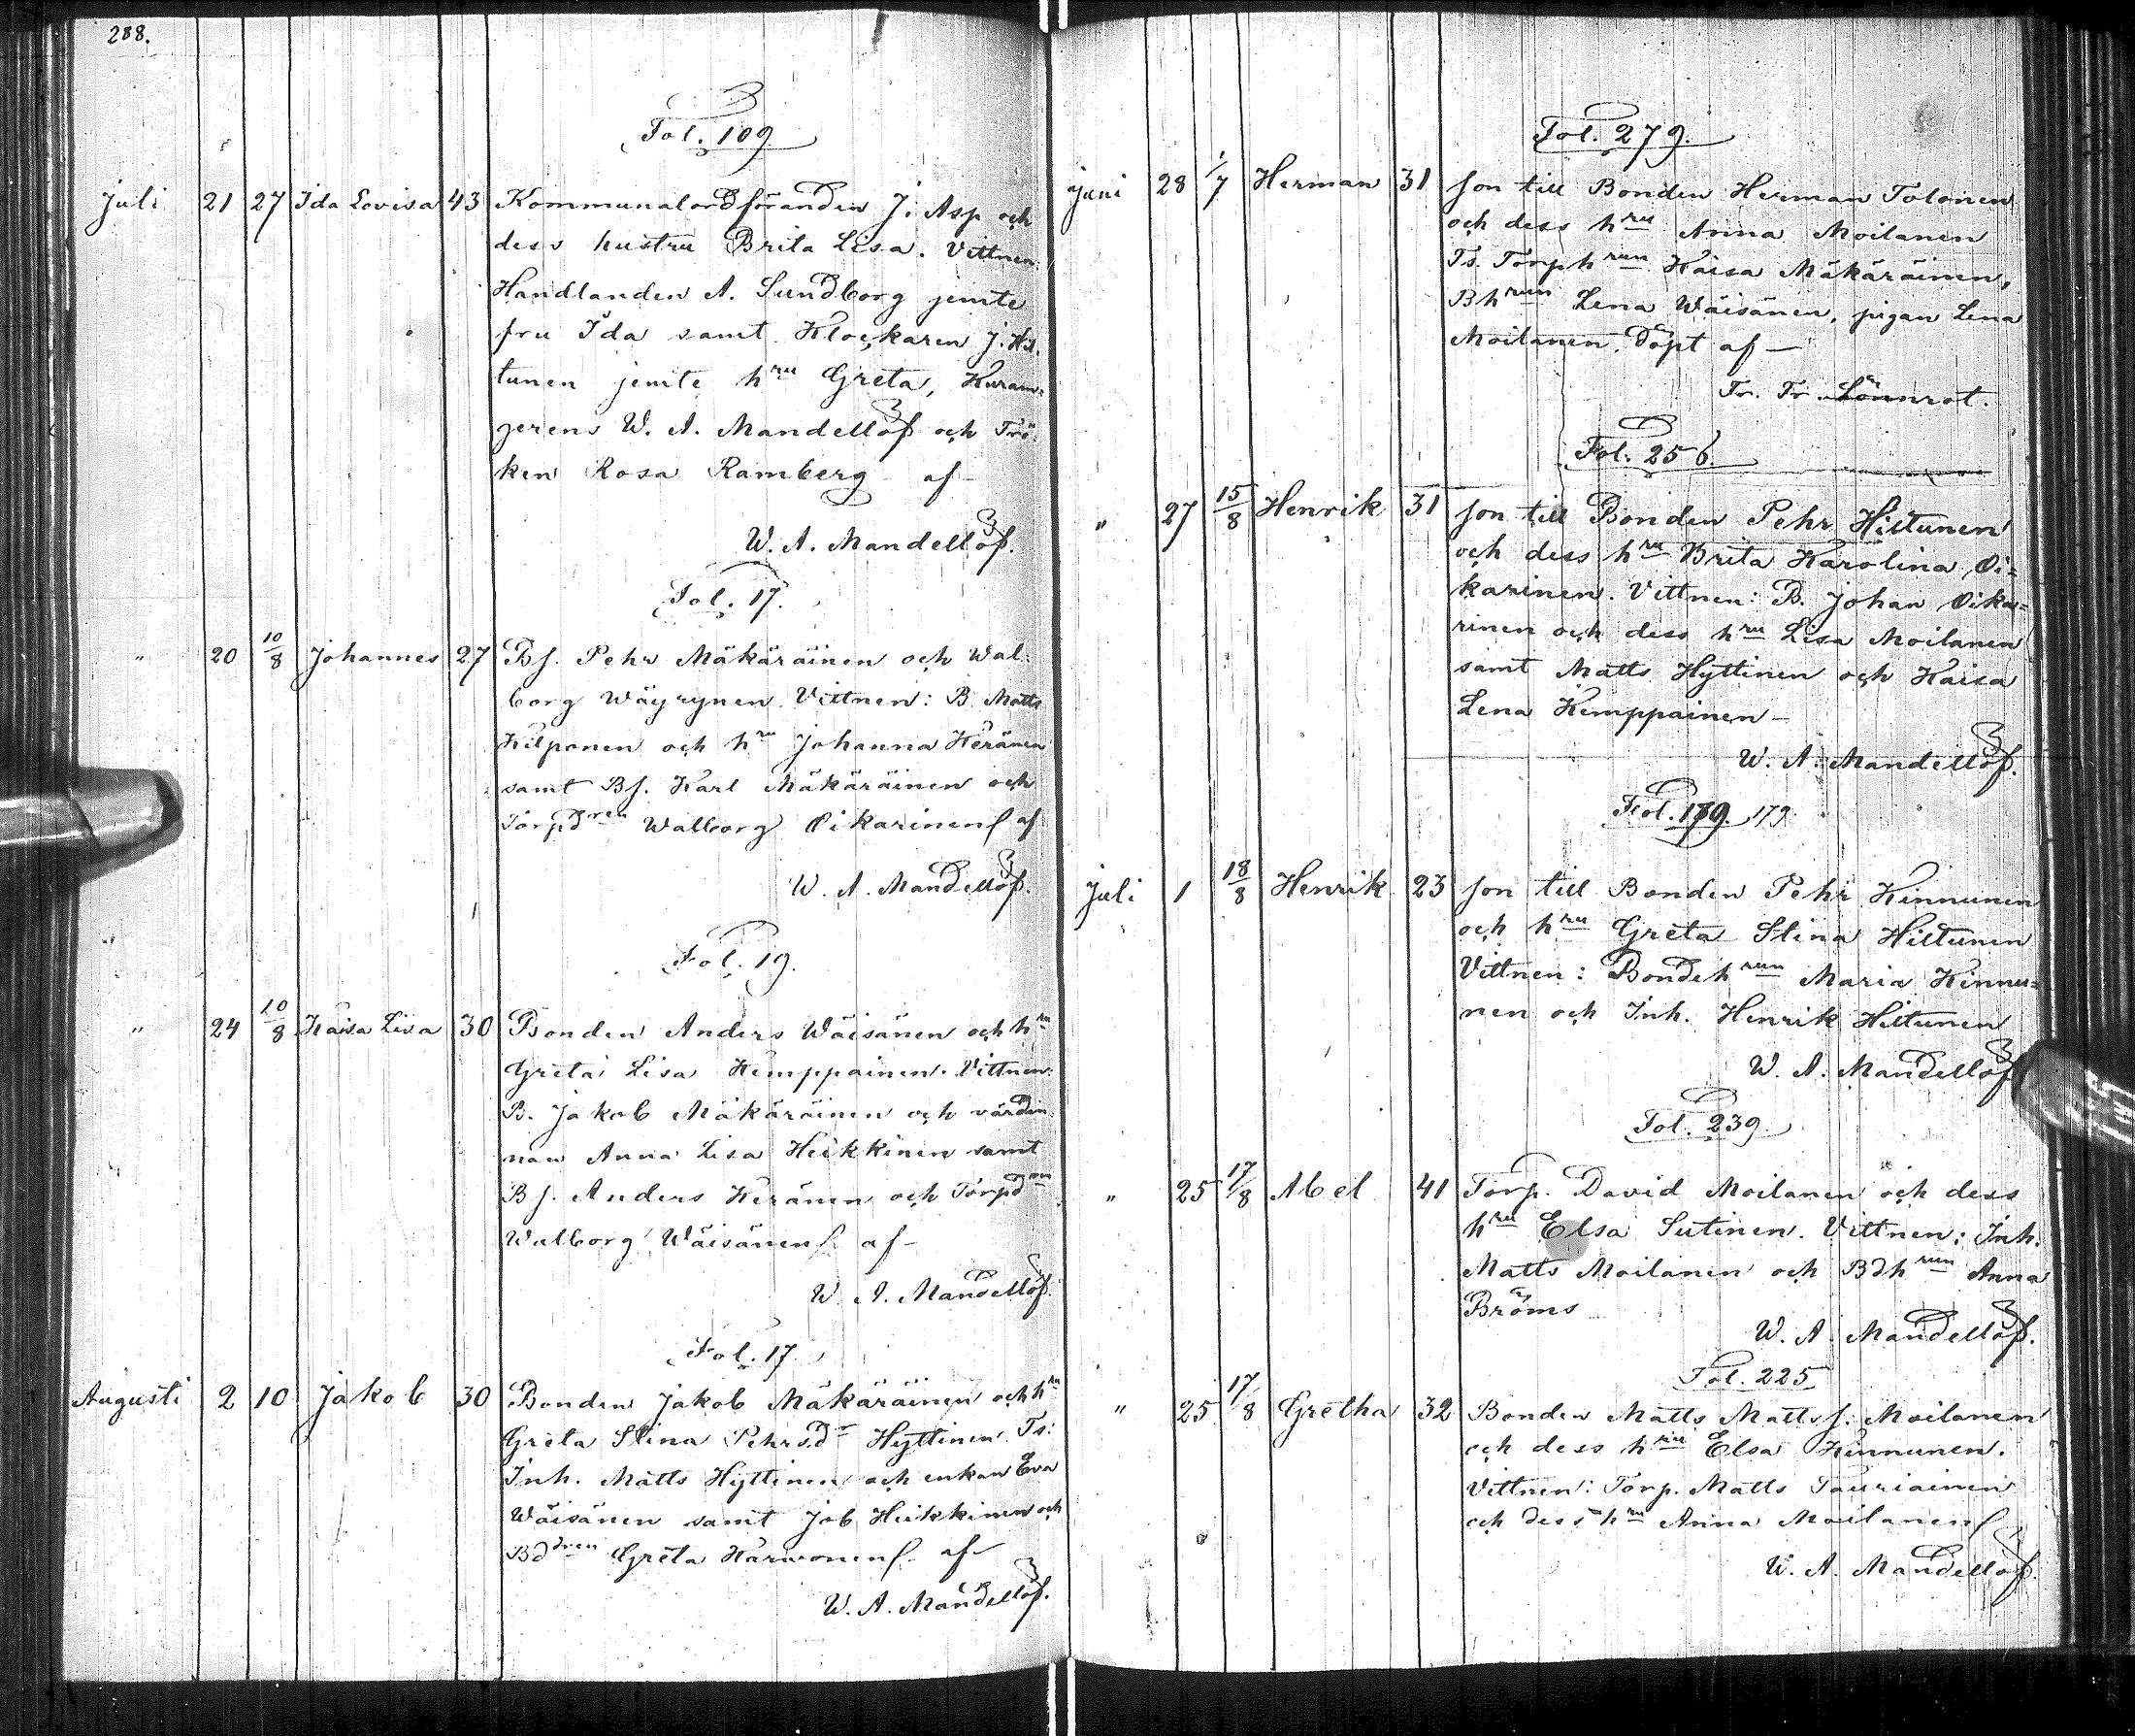 288.
Fol. 109.
Juli 21 27 Ida Lovisa 43 Kommunalordföranden J. Asp och
dess hustru Brita Lisa. Vittnen:
Handlanden A. Sundborg jemte
fru Ida samt Klockaren J. Hil,
tunen jemte hru Greta,
gerens W. A. Mandellöf och Frö,
ken Rosa Ramberg af
W. A. Mandellöf.
Fol. 17.
" 20 10/8 Johannes 27 Bs. Pehr Mäkäräinen och Wal-
borg Wäyrynen. Vittnen: B. Matts
Kilponen och hru Johanna Keränen
samt Bs. Karl Mäkäräinen och
Torpdren Walborg Oikarinen af
W. A. Mandellöf.
Fol. 19.
" 24 10/8 Kaisa Lisa 30 Bonden Anders Wäisänen och hru
Greta Lisa Kemppainen. Vittnen:
B. Jakob Mäkäräinen och värdin
nan Anna Lisa Heikkinen samt
Bs. Anders Keränen och Torpd
Walborg Wäisänen af
W. A. Mandellöf.
Fol. 17.
Augusti 2 10 Jakob 30 Bonden Jakob Mäkäräinen och hru
Greta Stina Pehrsdr Hyttinen. Ts:
Inh. Matts Hyttinen och enkan Eva
Wäisänen samt Job Heikkinen och
Bddren Greta Karwonen af
W. A. Mandellöf.
Fol. 279.
Juni 28 1/7 Herman 31 Son till Bonden Herman Tolonen
och dess hru Anna Moilanen
Ts. Torphrun Kaisa Mäkäräinen,
Bhrun Lena Wäisänen, pigan Lena
Moilanen. Döpt af
Fr. Fr. Lönnrot.
Fol. 256.
" 27 15/8 Henrik 31 Son till Bonden Pehr Hiltunen
och dess hru Brita Karolina Oi=
karinen. Vittnen: B. Johan Oika=
rinen och dess hru Lisa Moilanen
samt Matts Hyttinen och Kaisa
Lena Kemppainen
W. A. Mandellöf.
Fol. 179. 179.
Juli 1 18/8 Henrik 23 Son till Bonden Pehr Kinnunen
och hru Greta Stina Hiltunen
Vittnen: Bondehrun Maria Kinnu=
nen och Inh. Henrik Hiltunen
W. A. Mandellöf
Fol. 239.
" 25 17/8 Abel 41 Torp. David Moilanen och dess
hru Elsa Sutinen. Vittnen: Inh.
Matts Moilanen och Bdhrun Anna
Broms
W. A. Mandellöf.
Fol. 225
" 25 17/8 Gretha 32 Bonden Matts Mattss. Moilanen
och dess hru Elsa Kinnunen.
Vittnen: Torp. Matts Tauriainen
och dess hru Anna Moilanen
W. A. Mandellöf.